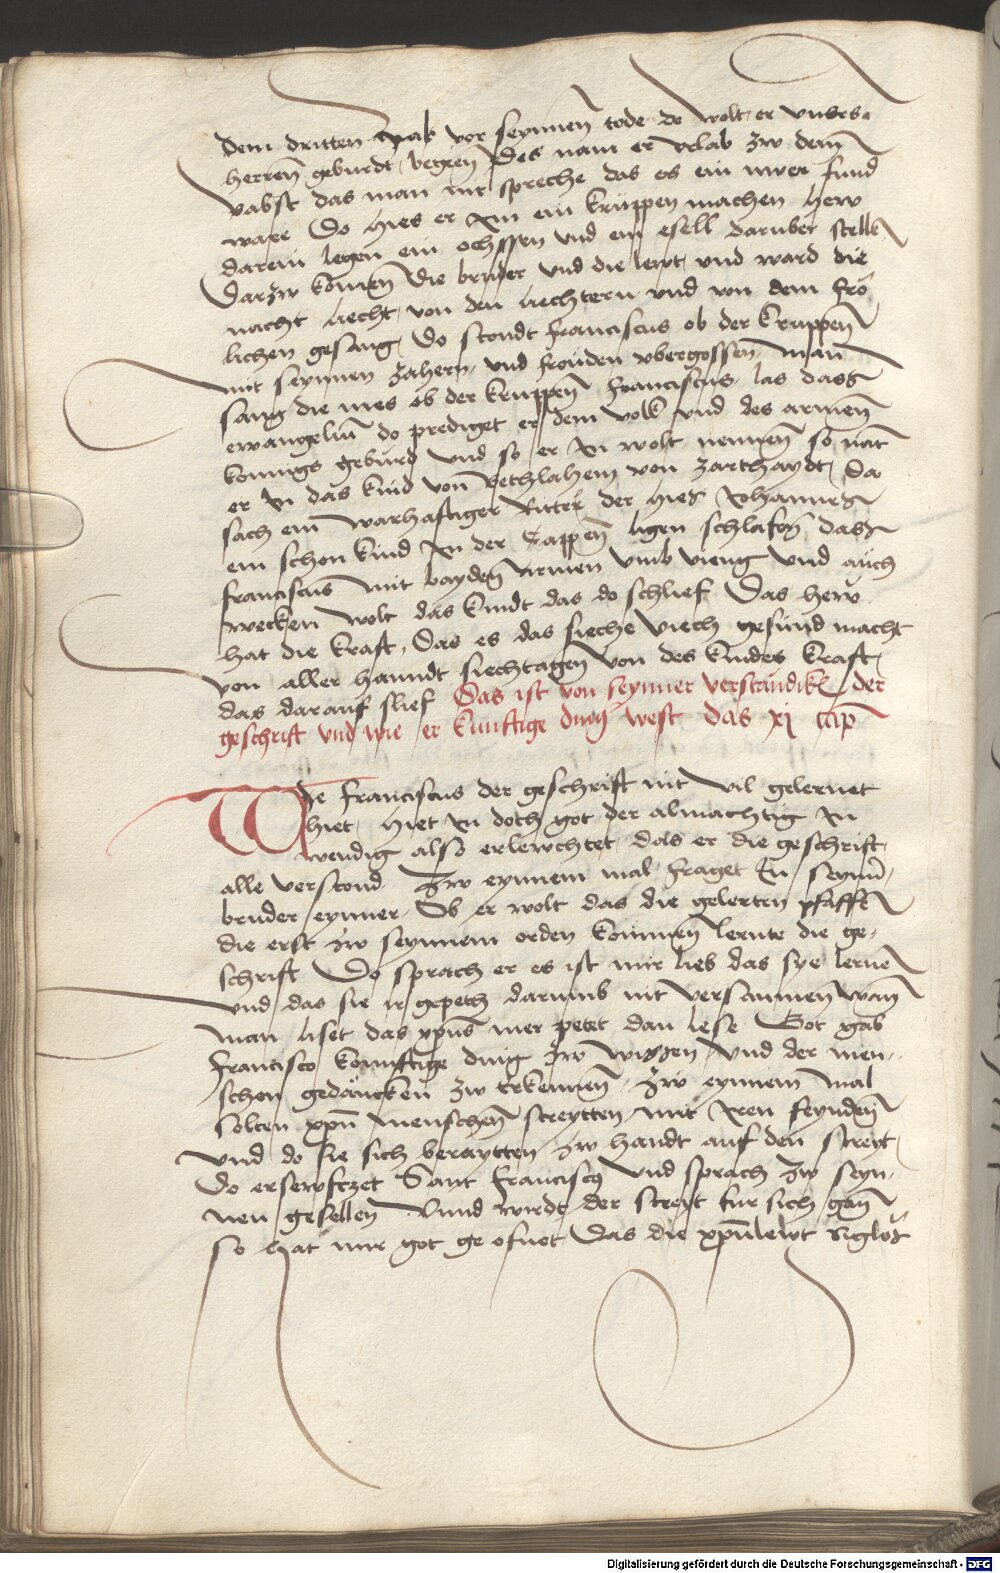 dem dritten Jar vor seynnen tode do wolt er unsrs
herren geburdt begeen Des nam er vrlab zw dem
babst das man nit spreche das es ein niwer fund
ware Do hies er Im ein kruppen machen hew
darein legen ein ochssen vnd ein esell daruber stellen
Darzw komen die bruder vnd die lewt vnd ward die
nacht liecht von den liechtern vnd von dem frö
lichen gesang Do stondt franciscus ob der kruppen
mit seynnen zahern vnd frouden vbergossen man
sang die mes ob der kruppen franciscus las dass
ewangelium do prediget er dem volk vnd des armen
konigs geburd vnd so er In wolt nennen so nant
er In das kind von Bethlahem von zarthaydt Da
sach ein warhaftiger Ritter der hies Johannes
ein schon kind In der krappen ligen schlafen dass
franciscus mit bayden armen vmb vieng vnd auch
wecken wolt das kindt das do schlief Das hew
hat die kraft Das es das sieche viech gesund macht
von aller hanndt siechtagen von des kindes kraft
das darauf slief Das ist von seynner verstandikeit der
geschrift vnd wie er kunftige ding west das xj cap
Wie franciscus der geschrift nit vil gelernet
hiet hiet In doch got der almachtig In
wendig also erlewchtet das er die geschrift
alle verstond Zw eynnem mal fraget In seynner
bruder eynner Ob er wolt das die gelerten pfaffen
die erst zw seynnem orden komen lernte die ge
schrift Do sprach er es ist mir lieb das sye lernen
vnd das sie ir gepeth darumb nit versaumen wann
man liset das xpus mer petet dan lese Got gab
francisco konnftige ding zw wissen vnd der men
schen gedancken zw erkennen zw eynnem mal
solten xpn menschen streytten mit Iren feynden
vnd do sie sich beraytten zw handt auf den streyt
Do ersewfczet Sant franciscus vnd sprach zw seyn
nen gesellen Vnnd wirdt der streyt fur sich gan
so hat mir got ge ofnet Das die xpnlewt Siglos
Digitalisierung gefördert durch die Deutsche Forschungsgemeinschaft - DFG